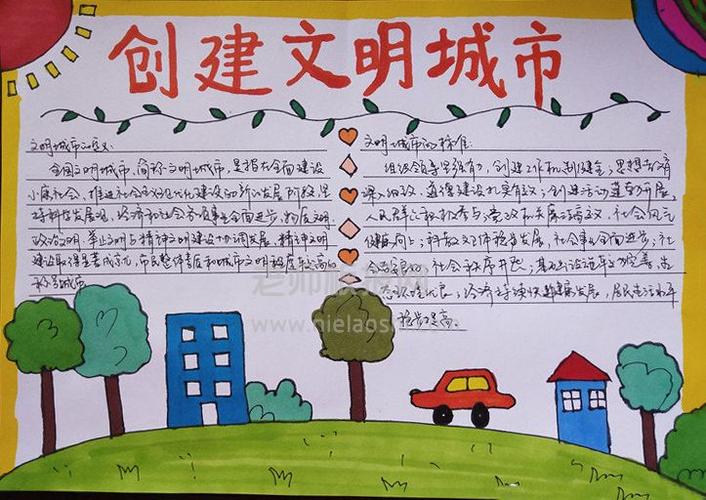 创建文明城市
文明城市的意义:
全国文明城市,简称文明城市,是指在全面建设
小康社会,推进社会主义现代化建设的新的发展阶段,坚
持科学发展观,经济和社会各项事业全面进步,物质文明
政治文明、与精神文明建设协调发展,精神文明
建设取得显著成就,市民整体素质和城市文明程度较高的
城市。
文明城市的标准:
组织领导坚强有力,创建工作机制健全;思想教育
深入细致,道德建设扎实有效;创建活动蓬勃开展,
人民群众积极参与;党政机关廉洁高效,社会风气
健康向上;科教文卫体稳步发展,社会事业全面进步;社
会,社会秩序;基础设施完善,生
态环境优良;经济持续快速健康发展,居民生活水平
稳步提高。
老师板报网